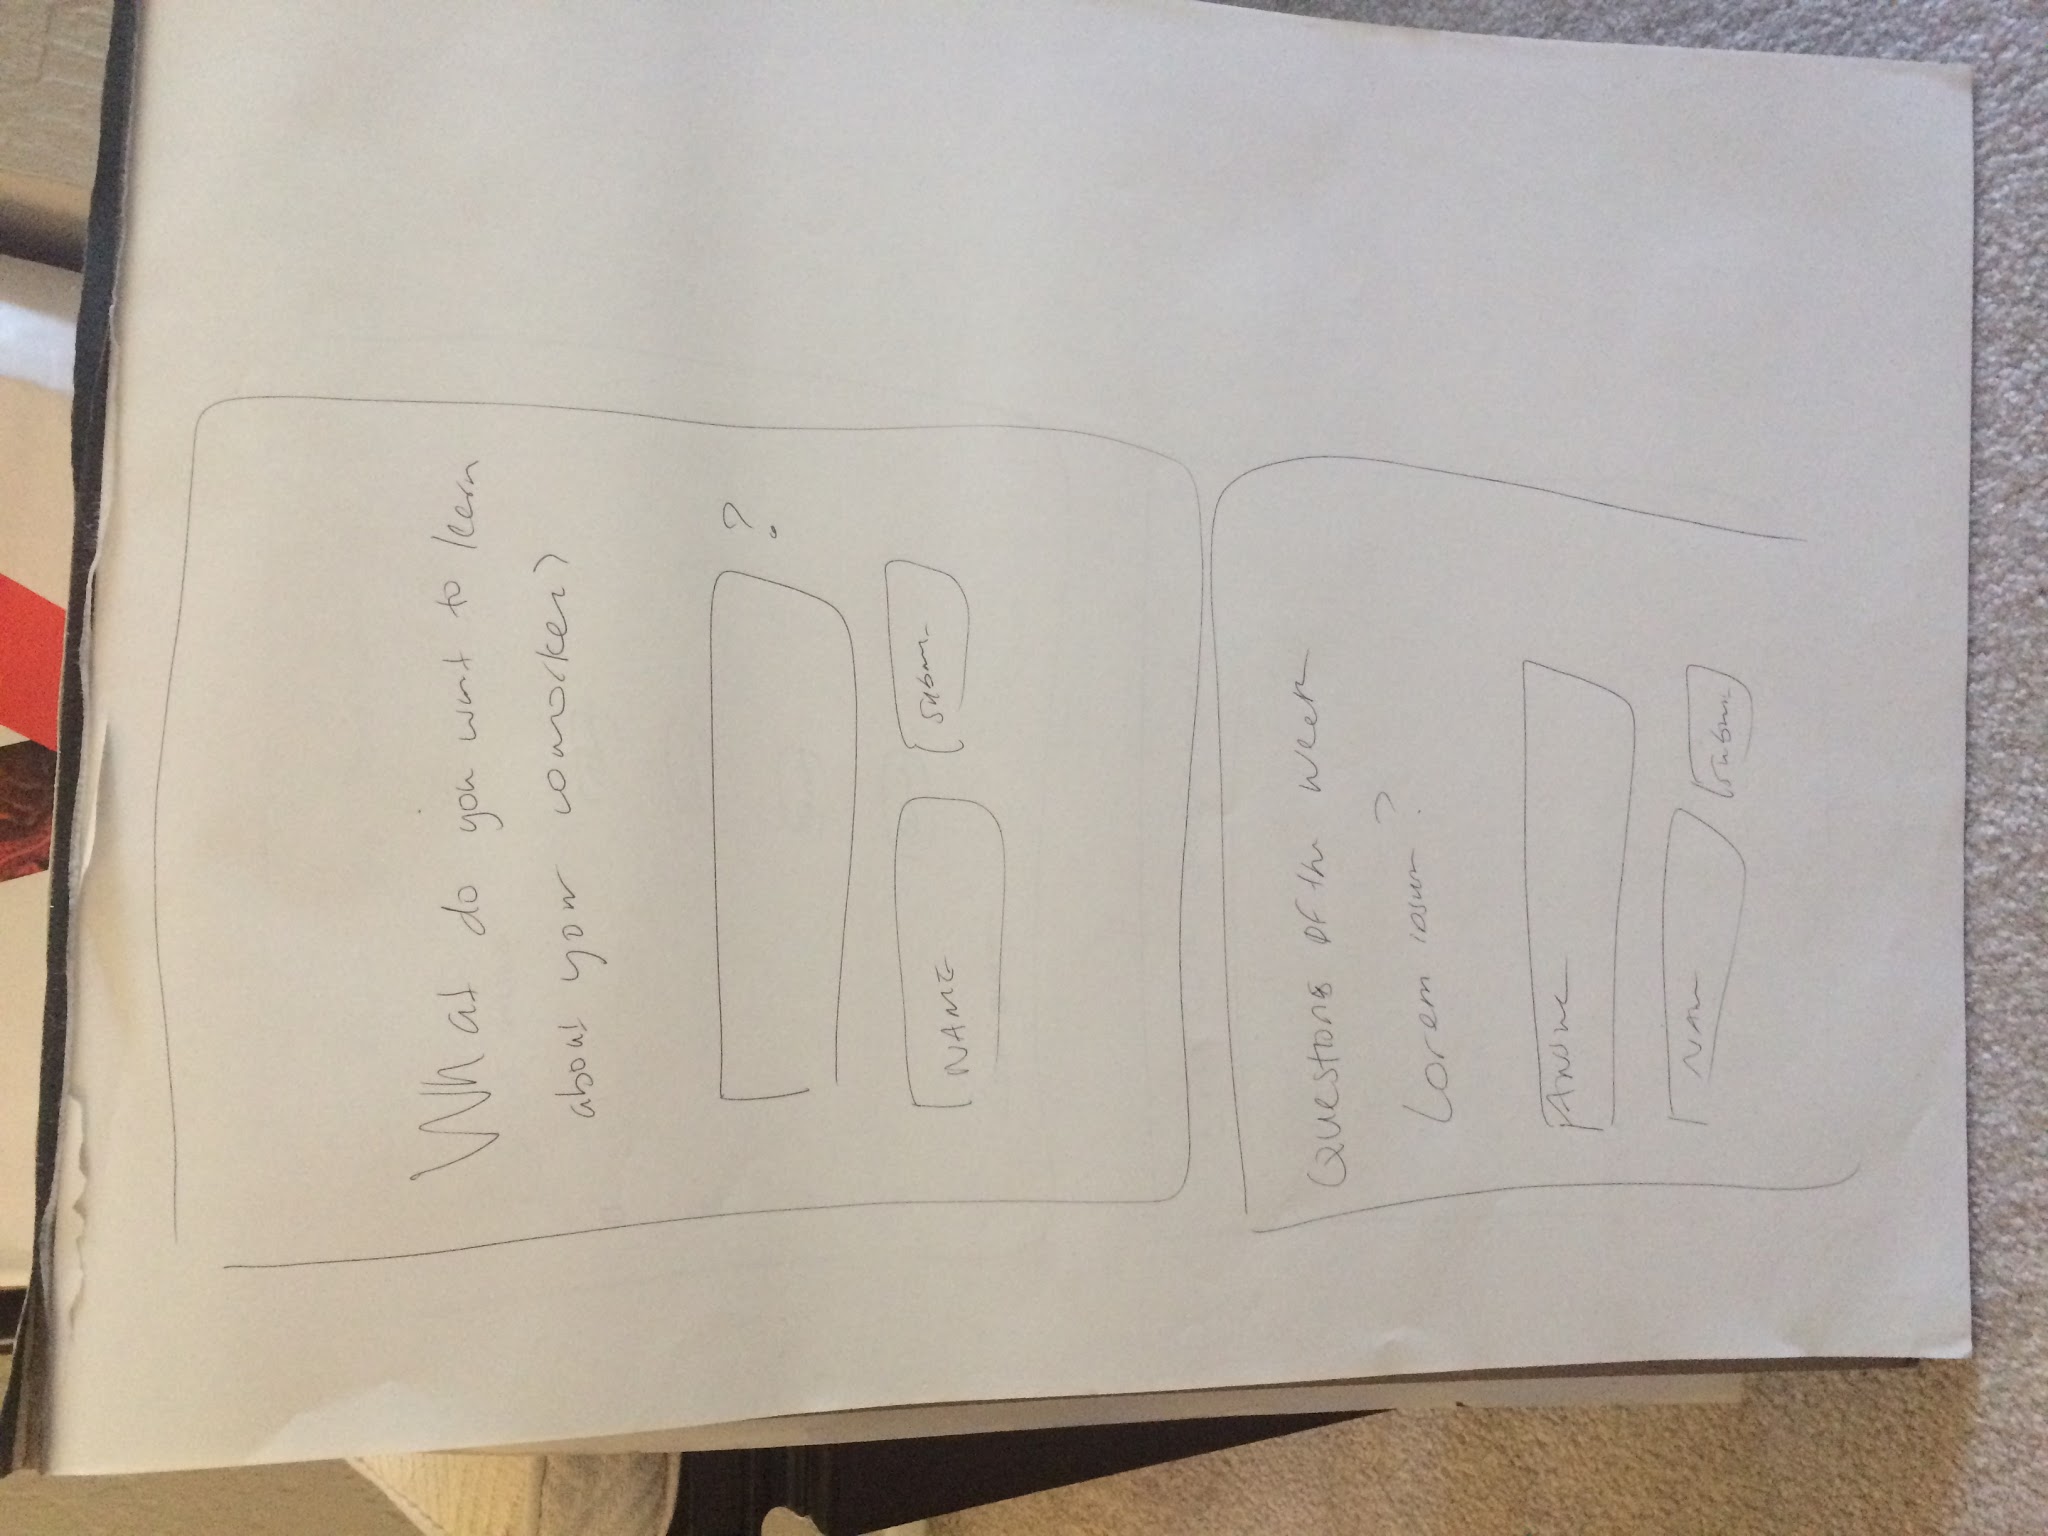 What do you want to learn
about your coworker?
?
NAME
Submi
Questions of the week
Lorem ipsum?
Answe
Nam
Submi